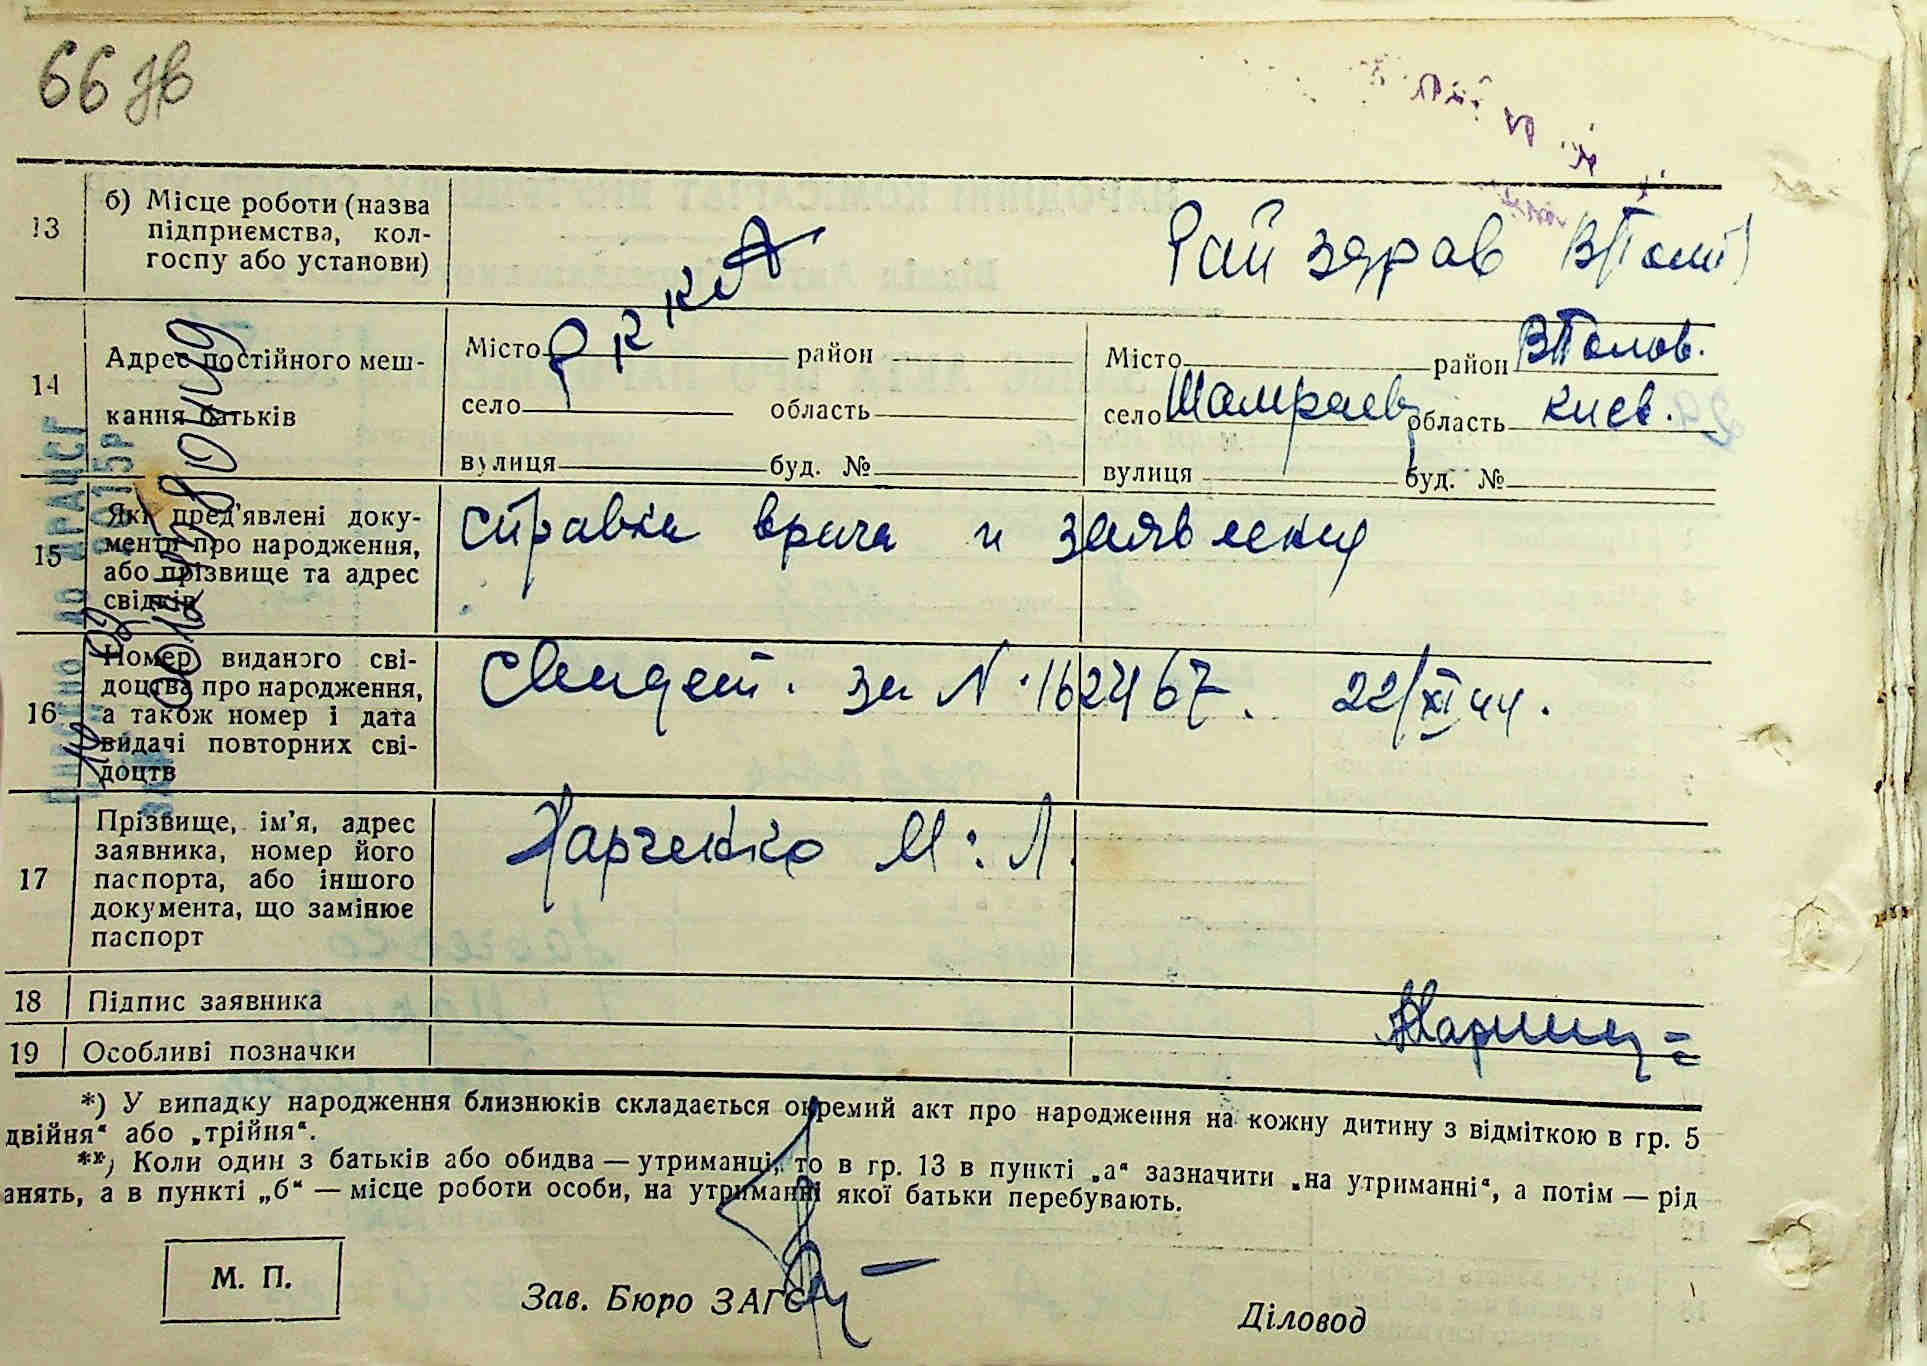 66 зв
13 б) Місце роботи (назва
підприємства, кол-
госпу або установи)
РККА
Рай здрав
14 Адрес постійного меш-
кання батьків
Місто район
село область
вулиця буд. №
Місто район В Полов.
село Шамраев область Киев.
вулиця буд. №
15 Які пред'явлені доку-
менти про народження,
або прізвище та адрес
свідків
справка врача и заявления
16 Номер виданого сві-
доцтва про народження,
а також номер і дата
видачі повторних сві-
доцтв
Свидет. за N. 162467. 22/XI 44.
17 Прізвище, ім'я, адрес
заявника, номер його
паспорта, або іншого
документа, що замінює
паспорт
Харченко М. Л.
18 Підпис заявника
19 Особливі позначки
*) У випадку народження близнюків складається окремий акт про народження на кожну дитину з відміткою в гр. 5
двійня" або „трійня".
**) Коли один з батьків або обидва — утриманці, то в гр. 13 в пункті „а" зазначити „на утриманні", а потім — рід
анять, а в пункті „б" — місце роботи особи, на утриманні якої батьки перебувають.
М. П.
Зав. Бюро ЗАГС
Діловод